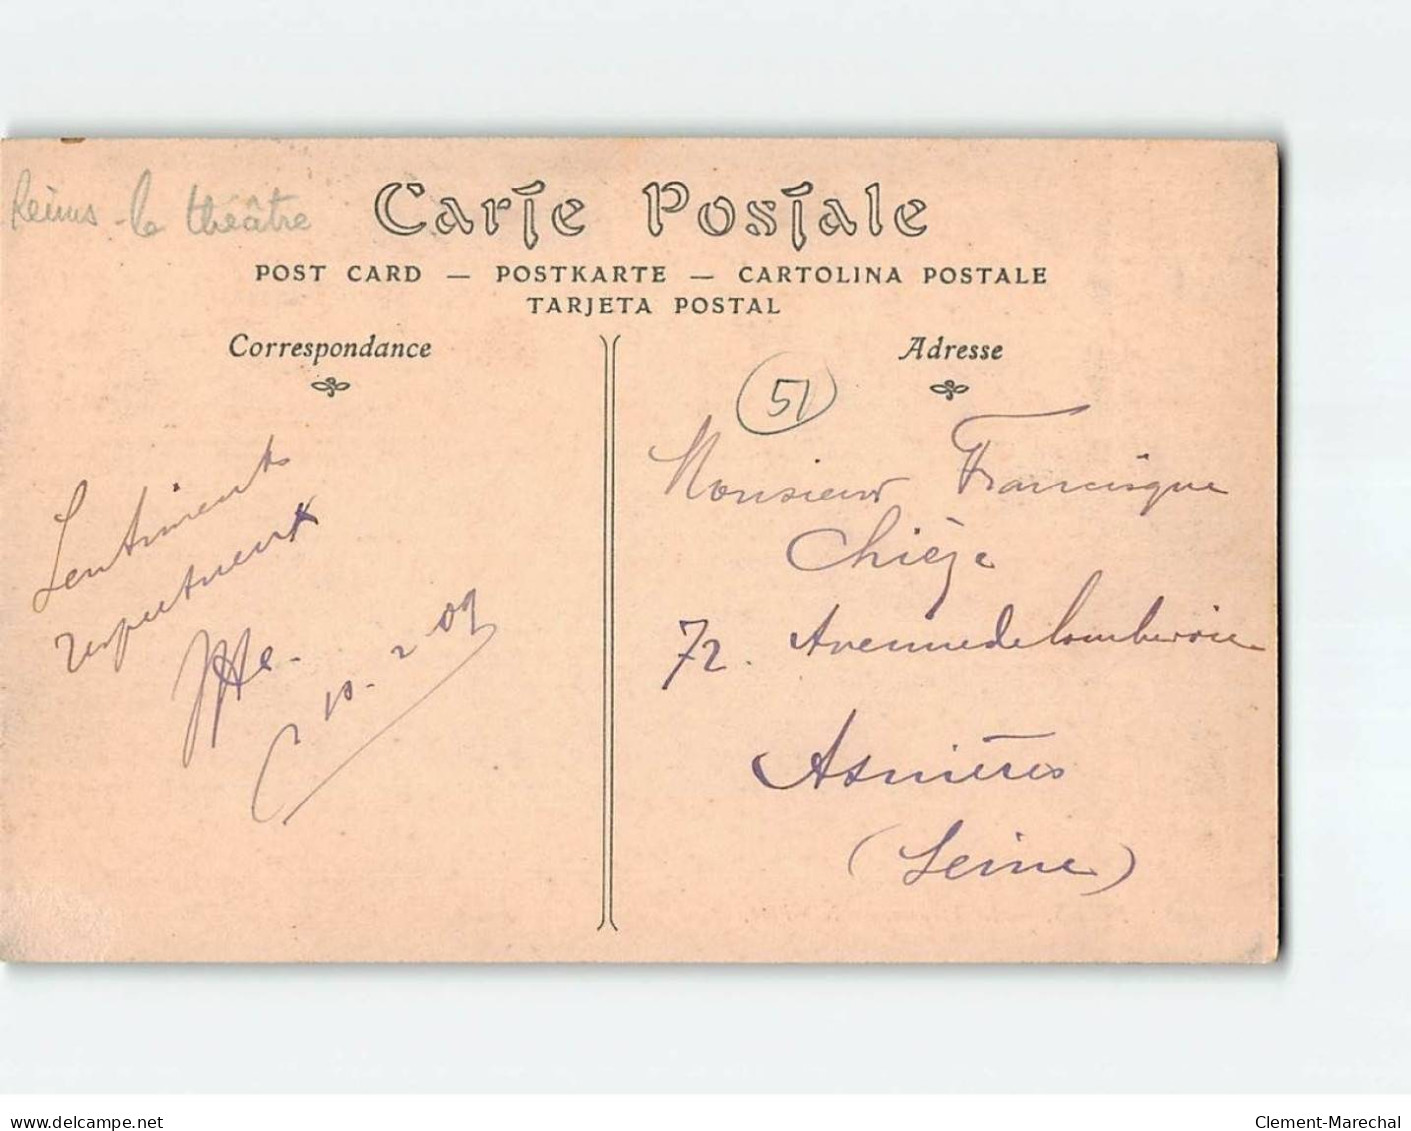 Reims - le théâtre
Carte Postale
POST CARD — POSTKARTE — CARTOLINA POSTALE
TARJETA POSTAL
Correspondance
Adresse
51
Sentiments
respectueux
10-2-09
Monsieur Francisque
Chièze
72. Avenue de
Asnières
(Seine)
www.delcampe.net
Clement-Marechal